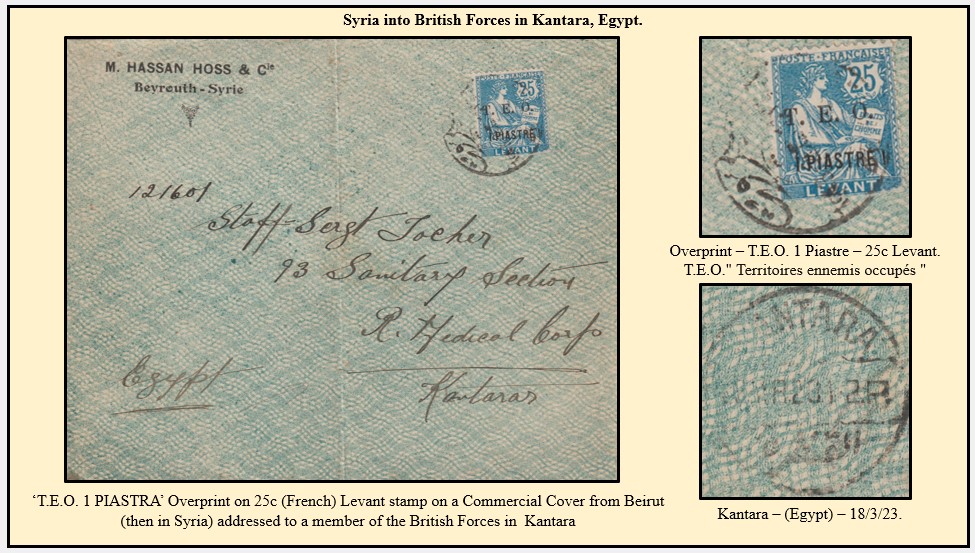 Syria into British Forces in Kantara, Egypt.
M. HASSAN HOSS & Cie
Beyrouth - Syrie
POSTE FRANÇAISE
25
T. E. O.
1 PIASTRE
LEVANT
121601
Staff Sergt Tocher
93 Sanitary Section
R. Medical Corps
Kantara
Egypt
‘T.E.O. 1 PIASTRA’ Overprint on 25c (French) Levant stamp on a Commercial Cover from Beirut
(then in Syria) addressed to a member of the British Forces in Kantara
POSTE FRANÇAISE
25
T. E. O.
1 PIASTRE
LEVANT
Overprint – T.E.O. 1 Piastre – 25c Levant.
T.E.O." Territoires ennemis occupés "
ANTARA
Kantara – (Egypt) – 18/3/23.